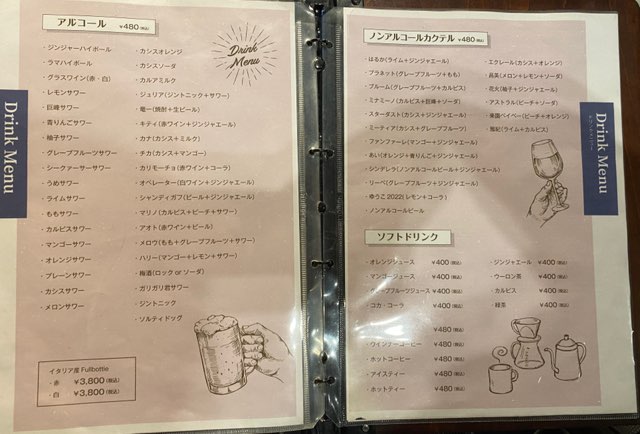 アルコール ¥480(税込)
Drink Menu
・ジンジャーハイボール
・ラマハイボール
・グラスワイン(赤・白)
・レモンサワー
・巨峰サワー
・青りんごサワー
・柚子サワー
・グレープフルーツサワー
・シークァーサーサワー
・うめサワー
・ライムサワー
・ももサワー
・カルピスサワー
・マンゴーサワー
・オレンジサワー
・プレーンサワー
・カシスサワー
・メロンサワー
・カシスオレンジ
・カシスソーダ
・カルアミルク
・ジュリア(ジントニック+サワー)
・竜一(焼酎+生ビール)
・キティ(赤ワイン+ジンジャエール)
・カナ(カシス+ミルク)
・チカ(カシス+マンゴー)
・カリモーチョ(赤ワイン+コーラ)
・オペレーター(白ワイン+ジンジャエール)
・シャンディガフ(ビール+ジンジャエール)
・マリノ(カルピス+ピーチ+サワー)
・アオト(赤ワイン+ビール)
・メロウ(もも+グレープフルーツ+サワー)
・ハリー(マンゴー+レモン+サワー)
・梅酒(ロック or ソーダ)
・ガリガリ君サワー
・ジントニック
・ソルティドッグ
イタリア産 Fullbottle
・赤 ¥3,800(税込)
・白 ¥3,800(税込)
Drink Menu
ノンアルコールカクテル ¥480(税込)
・はるか(ライム+ジンジャエール)
・プラネット(グレープフルーツ+もも)
・ブルーム(グレープフルーツ+カルピス)
・ミナミーノ(カルピス+巨峰+ソーダ)
・スターダスト(カシス+ジンジャエール)
・ミーティア(カシス+グレープフルーツ)
・ファンファーレ(マンゴー+ジンジャエール)
・あい(オレンジ+青りんご+ジンジャエール)
・シンデレラ(ノンアルコールビール+ジンジャエール)
・リーベ(グレープフルーツ+ジンジャエール)
・ゆうこ2022(レモン+コーラ)
・ノンアルコールビール
・エクレール(カシス+オレンジ)
・花火(柚子+ジンジャエール)
・アストラル(ピーチ+ソーダ)
(ピーチ+オレンジ)
(ライム+カルピス)
Drink Menu
ソフトドリンク
・オレンジジュース ¥400(税込)
・マンゴージュース ¥400(税込)
・グレープフルーツジュース ¥400(税込)
・コカ・コーラ ¥400(税込)
・ジンジャエール ¥400(税込)
・ウーロン茶 ¥400(税込)
・カルピス ¥400(税込)
・緑茶 ¥400(税込)
¥480(税込)
・ウインナーコーヒー ¥480(税込)
・ホットコーヒー ¥480(税込)
・アイスティー ¥480(税込)
・ホットティー ¥480(税込)